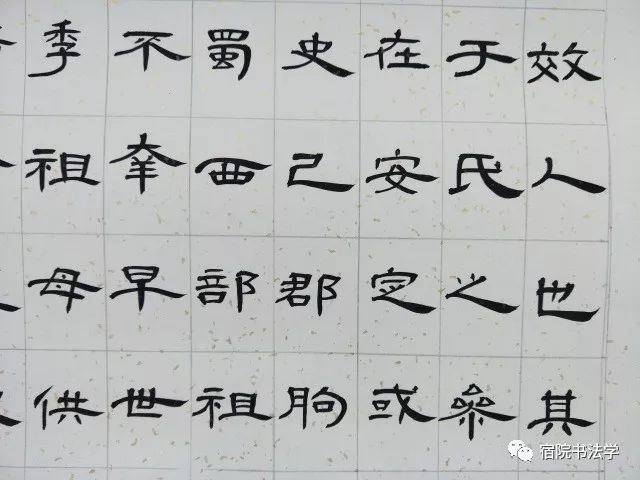 效人也其
于氏之參
在安定或
史己郡朐
蜀西部祖
不幸早世
季祖母供
宿院书法学